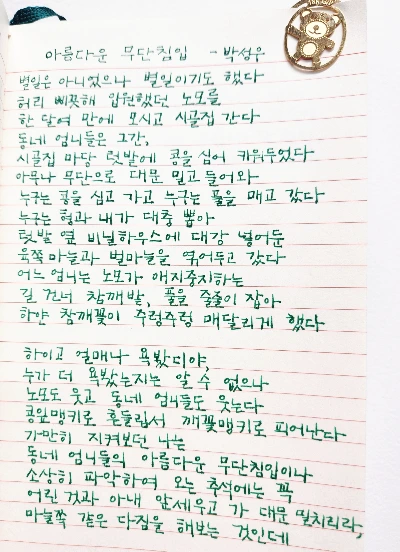 아름다운 무단침입 - 박성우
별일은 아니었으나 별일이기도 했다
허리 삐끗해 입원했던 노모를
한 달여 만에 모시고 시골집 간다
동네 엄니들은 그간,
시골집 마당 텃밭에 콩을 심어 키워두었다
아무나 무단으로 대문 밀고 들어와
누구는 콩을 심고 가고 누구는 풀을 매고 갔다
누구는 형과 내가 대충 뽑아
텃밭 옆 비닐하우스에 대강 넣어둔
육쪽마늘과 벌마늘을 엮어두고 갔다
어느 엄니는 노모가 애지중지하는
길 건너 참깨밭, 풀을 줄줄이 잡아
하얀 참깨꽃이 주렁주렁 매달리게 했다
하이고 얼매나 욕봤디야,
누가 더 욕봤는지는 알 수 없으나
노모도 웃고 동네 엄니들도 웃는다
콩잎맹키로 흔들림서 깨꽃맹키로 피어난다
가만히 지켜보던 나는
동네 엄니들의 아름다운 무단침입이나
소상히 파악하여 오는 추석에는 꼭
어린 것과 아내 앞세우고 가 대문 밀치리라,
마늘쪽 같은 다짐을 해보는 것인데